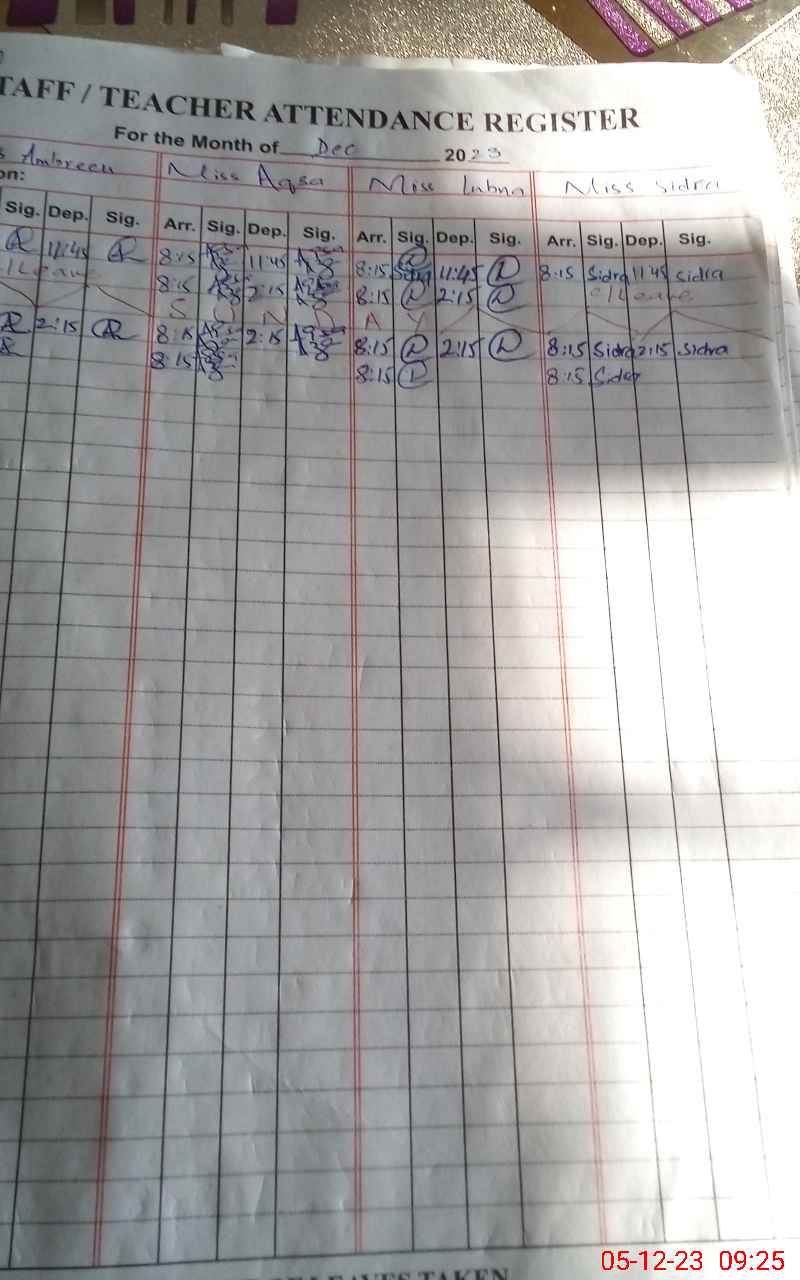 TAFF / TEACHER ATTENDANCE REGISTER
For the Month of Dec 2023
s Ambreen Miss Aqsa Miss Lubna Miss Sidra
on:
Sig. Dep. Sig. Arr. Sig. Dep. Sig. Arr. Sig. Dep. Sig. Arr. Sig. Dep. Sig.
11:45 8:15 11:45 8:15 11:45 8:15 Sidra 11:45 sidra
Leave 8:15 2:15 8:15 2:15 Leave
S U N D A Y
2:15 8:15 2:15 8:15 2:15 8:15 Sidra 2:15 Sidra
8:15 8:15 8:15 Sidra
LEAVES TAKEN
05-12-23 09:25